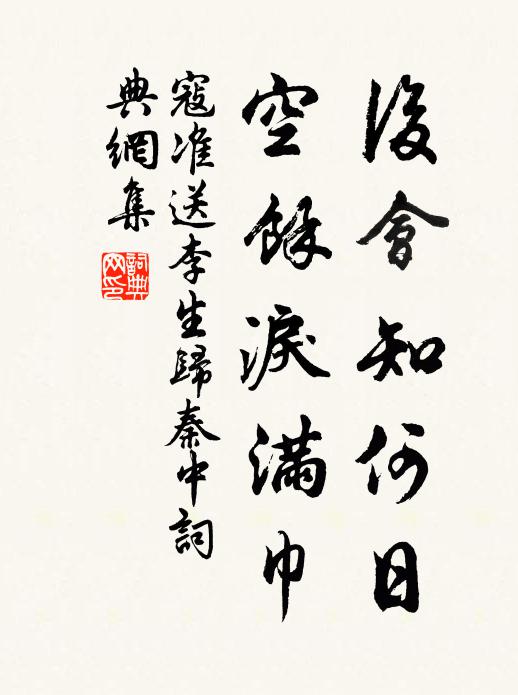 後會知何日
空餘淚滿巾
寇准送李生歸秦中詞
典網集
詞典
网印